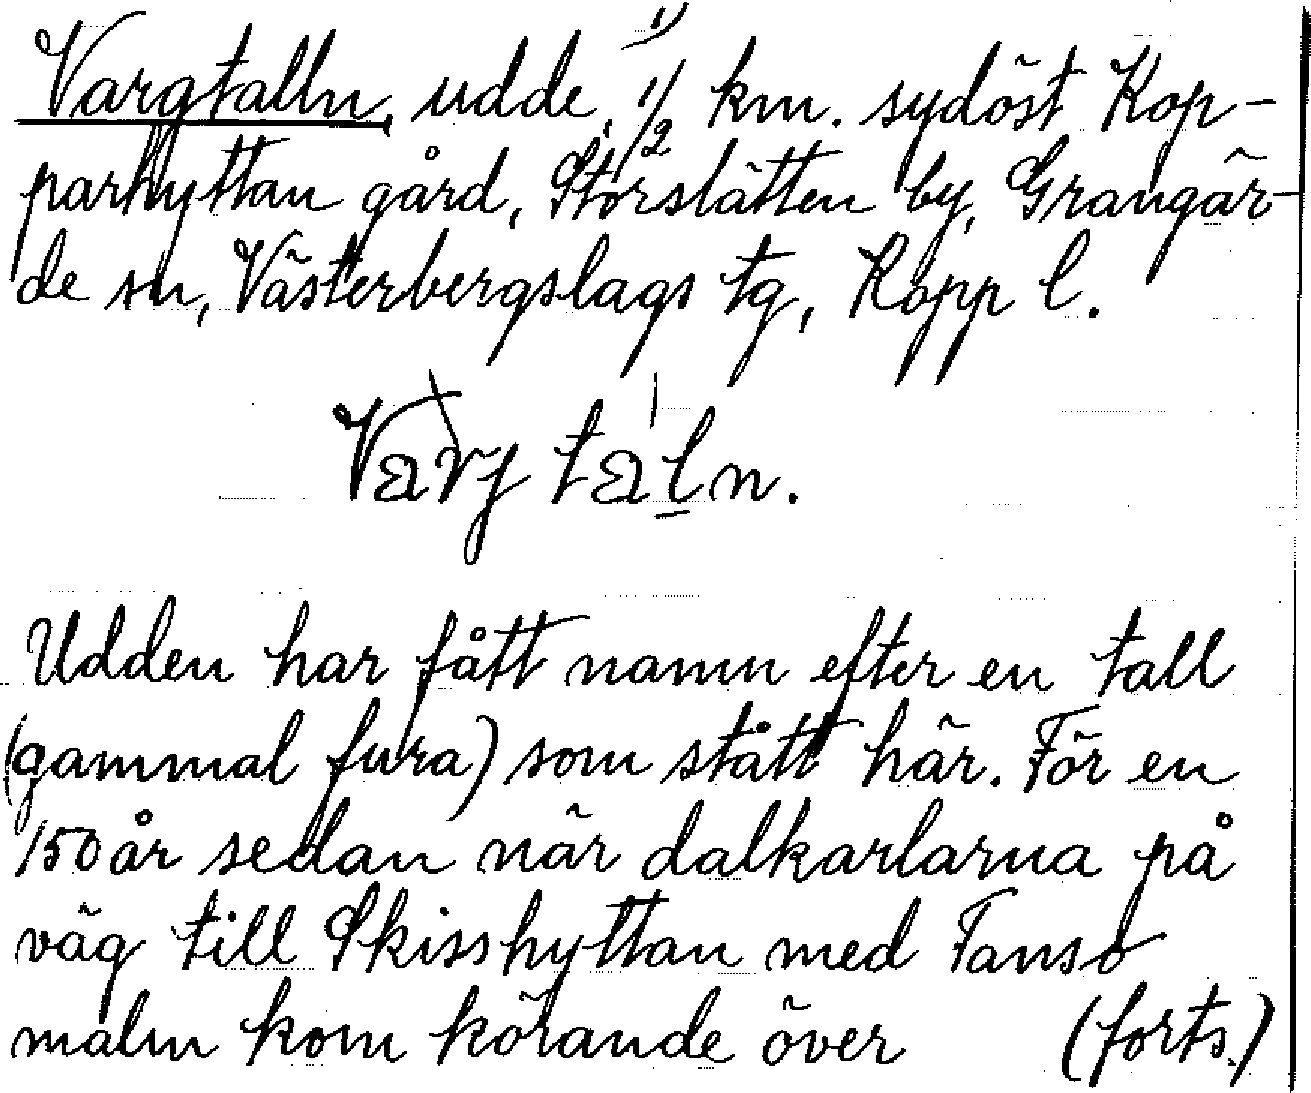 Vargtalln, udde, 1) 1/2 km. sydöst Kop-
parhyttan gård, Storslätten by, Grangär-
de sn, Västerbergslags tg, Kopp l.
Varj taln.
Udden har fått namn efter en tall
(gammal fura) som stått här. För en
150 år sedan när dalkarlarna på
väg till Skisshyttan med Fanso
malm kom körande över (forts.)